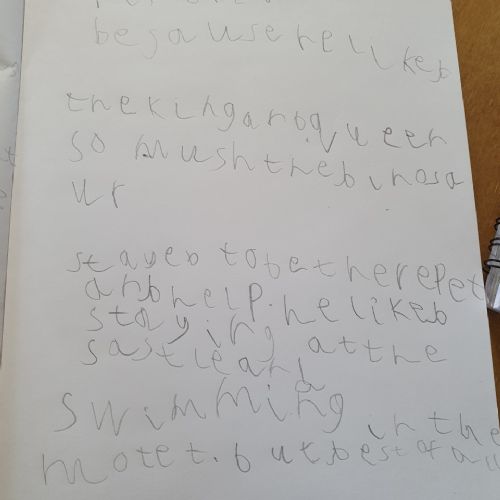 begause he likeb
the king anb queen
so mush the binosa
ur
stayeb tobether epet
anb help. he likeb
staying at the
sastle anb
a
swimming in the
motet. but best of all